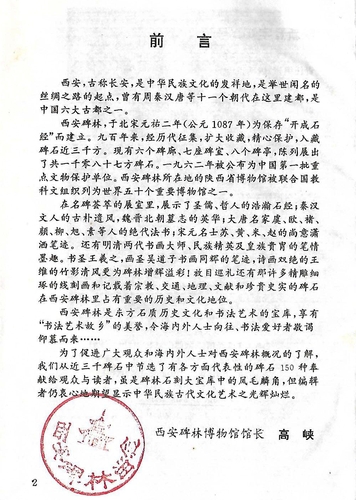 前言
西安,古称长安,是中华民族文化的发祥地,是举世闻名的
丝绸之路的起点,曾有周秦汉唐等十一个朝代在这里建都,是中
国六大古都之一。
西安碑林,于北宋元祐二年(公元1087年)为保存“开成石
经”而建立。九百年来,经历代征集,扩大收藏,精心保护,入藏
碑石近三千方。现有六个碑廊、七座碑室、八个碑亭,陈列展出
了共一千零八十七方碑石。一九六二年被公布为中国第一批重
点文物保护单位。西安碑林所在地的陕西省博物馆被联合国教
科文组织列为世界五十个重要博物馆之一。
在名碑荟萃的展室里,展示了圣儒、哲人的浩瀚石经;秦汉
文人的古朴遗风,魏晋北朝墓志的英华;大唐名家虞、欧、褚、
颜、柳、旭、素等人的绝代法书;宋元名士苏、黄、米、赵的尚意潇
洒笔迹。还有明清两代书画大师、民族精英及皇族贵胄的笔情
墨趣。书圣王羲之,画圣吴道子书画同辉的笔迹,诗画双绝的王
维的竹影清风更为碑林增辉溢彩!放目巡礼还有那许多精雕细
琢的线刻画和记载着宗教、交通、地理、文献和珍贵史实的碑石
在西安碑林里占有重要的历史和文化地位。
西安碑林是东方石质历史文化和书法艺术的宝库,享有
“书法艺术故乡”的美誉,令海内外人士向往、书法爱好者敬谒
仰慕而来……
为了促进广大观众和海内外人士对西安碑林概况的了解,
我们从近三千碑石中节选了有各方面代表性的碑石150种奉
献给观众与读者,虽是碑林石刻大宝库中的凤毛麟角,但编辑
者仍衷心地期望显示中华民族古代文化艺术之光辉灿烂。
西安碑林博物馆馆长 高峡
2